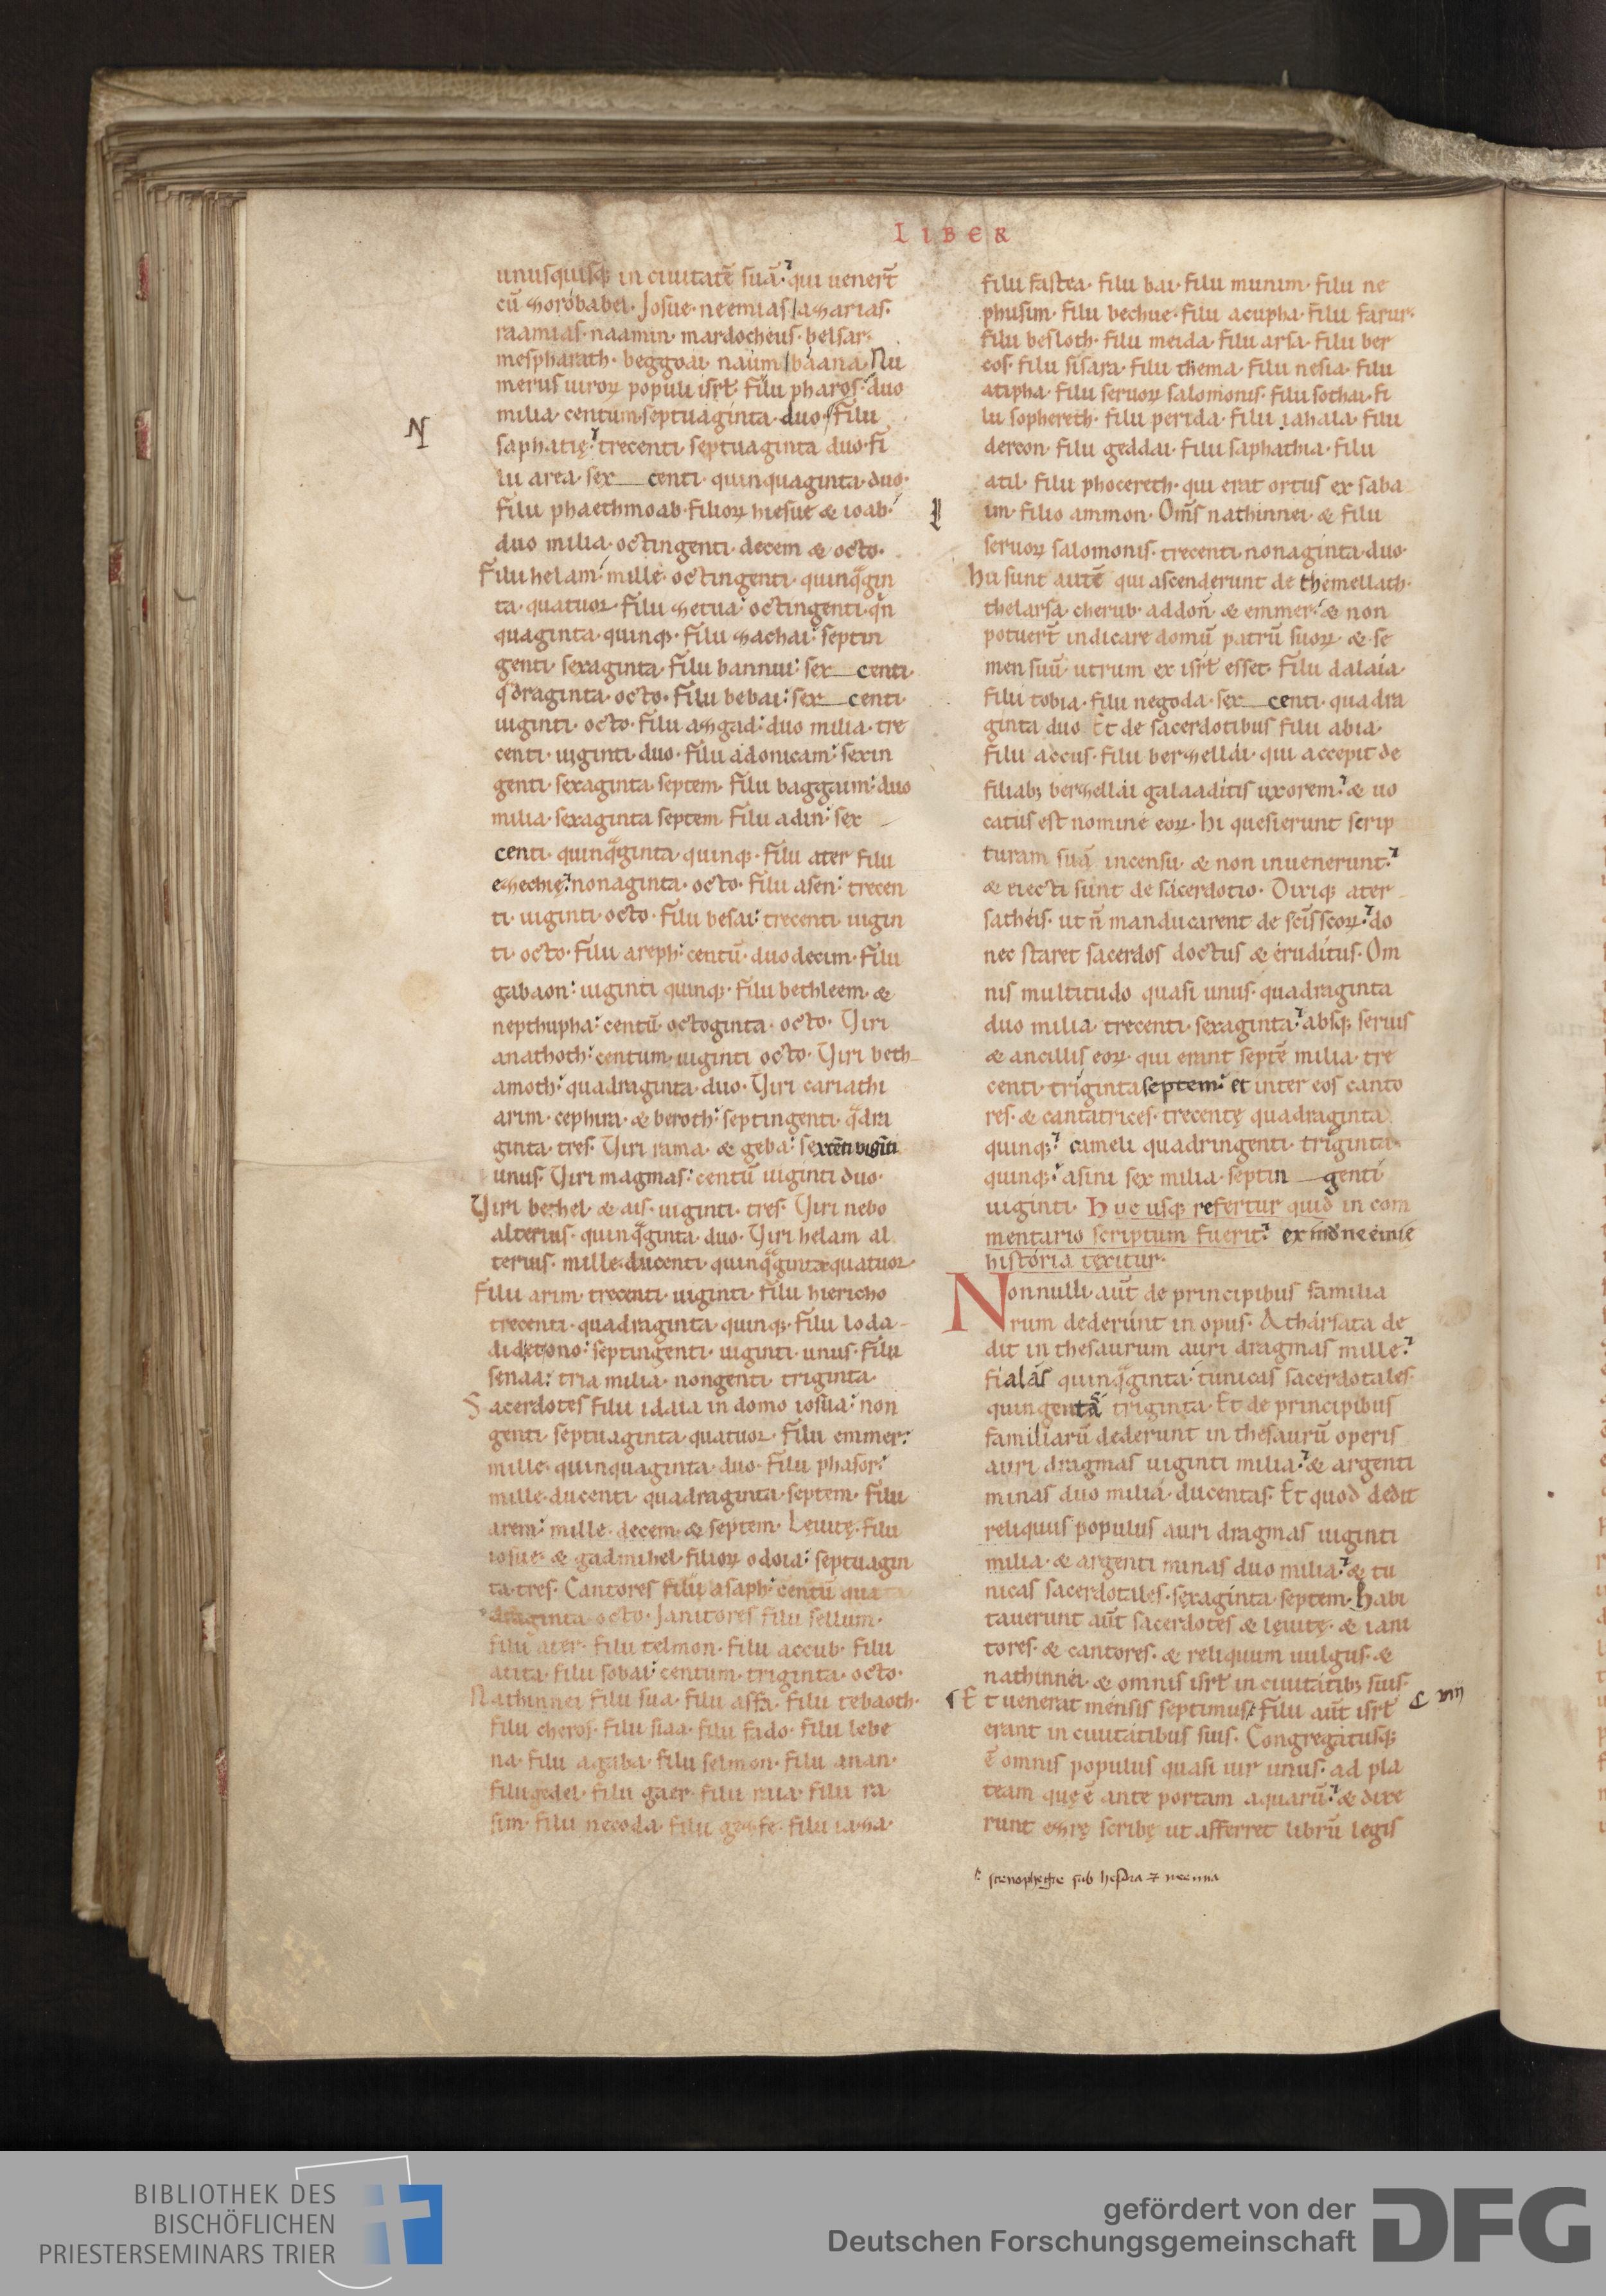 LIBER
unusquisq; in ciuitatē suā. qui uenert̄
cū zorobabel. Josue. neemias. azarias.
raamias. naamin. mardocheus. belsar.
mespharath. beggoai. naum. baana. Nu
merus uiroꝝ populi isrł. filii pharos. duo
milia. centum. septuaginta. duo. filii
N
saphatię. trecenti. septuaginta duo. fi
lii area. sex centi. quinquaginta. duo.
filii phaethmoab. filioꝝ hiesue & ioab.
duo milia. octingenti. decem & octo.
filii helam. mille. octingenti. quinqͣgin
ta. quatuor. filii zetua. octingenti. qͥn
quaginta. quinq;. filii zachai. septin
genti. sexaginta. filii bannui. sex centi.
qͣdraginta. octo. filii bebai. sex centi.
uiginti. octo. filii azgad. duo milia. tre
centi. uiginti. duo. filii adonicam. sexin
genti. sexaginta. septem. filii baggaim. duo
milia. sexaginta septem. filii adin. sex
centi. quinqͣginta. quinq;. filii ater filii
ezechię. nonaginta. octo. filii asen. trecen
ti. uiginti. octo. filii besai. trecenti. uigin
ti. octo. filii areph. centū. duodecim. filii
gabaon. uiginti quinq;. filii bethleem. &
nepthupha. centū. octoginta. octo. Viri
anathoth. centum. uiginti octo. Viri beth
amoth. quadraginta. duo. Viri cariathi
arim. cephira. & beroth. septingenti. qͣdra
ginta. tres. Viri rama. & geba. sexcēti uigīti
unus. Viri magmas. centū uiginti duo.
Viri bethel. & ais. uiginti. tres. Viri nebo
alterius. quinqͣginta. duo. Viri helam al
terius. mille. ducenti. quinqͣginta. quatuor
filii arim. trecenti. uiginti. filii hiericho
trecenti. quadraginta. quinq;. filii loda
didetono. septingenti. uiginti. unus. filii
senaa. tria milia. nongenti. triginta.
Sacerdotes filii idaia in domo iosua. non
genti. septuaginta. quatuor. filii emmer.
mille. quinquaginta. duo. filii phasor.
mille. ducenti. quadraginta. septem. filii
arem. mille. decem. & septem. Leuitę. filii
iosue. & gadmihel. filioꝝ odoia. septuagin
ta. tres. Cantores filii asaph. centū qua
draginta octo. Janitores filii sellum.
filii ater. filii telmon. filii accub. filii
atita. filii sobai. centum. triginta. octo.
Nathinnei filii sua. filii asfa. filii tebaoth.
filii cheros. filii siaa. filii fado. filii lebe
na. filii agaba. filii selmon. filii anan.
filii gedel. filii gaer. filii raia. filii ra
sim. filii necoda. filii gezfe. filii iaza.
filii fastea. filii bai. filii munim. filii ne
phusim. filii bechue. filii acupha. filii farur.
filii besloth. filii meida. filii arsa. filii ber
cos. filii sisara. filii thema. filii nesia. filii
atipha. filii seruoꝝ salomonis. filii sothai. fi
lii sophereth. filii perida. filii iahala. filii
dereon. filii geddai. filii saphathia. filii
atil. filii phocereth. qui erat ortus ex saba
im. filio ammon. Om̄s nathinnei. & filii
seruoꝝ salomonis. trecenti. nonaginta. duo.
Hii sunt autē qui ascenderunt de themellath.
thelarsa. cherub. addon. & emmer. & non
potuert̄ indicare domū patrū suoꝝ. & se
men suū. utrum ex isrł esset. filii dalaia.
filii tobia. filii negoda. sex centi. quadra
ginta duo. Et de sacerdotibus filii abia.
filii accus. filii berzellai. qui accepit de
filiab; berzellai galaaditis uxorem. & uo
catus est nomine eoꝝ. hi quesierunt scrip
turam suā incensu. & non inuenerunt.
& eiecti sunt de sacerdotio. Dixiq; ater
satheis. ut n̄ manducarent de scīs scoꝝ. do
nec staret sacerdos doctus & eruditus. Om
nis multitudo quasi unus. quadraginta
duo milia. trecenti. sexaginta. absq; seruis
& ancillis eoꝝ. qui erant septē milia. tre
centi. triginta septem. et inter eos canto
res. & cantatrices. trecentę quadraginta
quinq;. cameli quadringenti. triginta.
quinq;. asini sex milia. septin genti
uiginti. Huc usq; refertur quid in com
mentario scriptum fuerit. exīd neemie
historia texitur.
Nonnulli. aut̄ de principibus familia
rum dederunt in opus. Athersata de
dit in thesaurum auri dragmas mille.
fialas quinqͣginta. tunicas sacerdotales.
quingentas triginta. Et de principibus
familiarū dederunt in thesaurū operis
auri dragmas uiginti milia. & argenti
minas duo milia. ducentas. Et quod dedit
reliquus populus auri dragmas uiginti
milia. & argenti minas duo milia. & tu
nicas sacerdotales. sexaginta. septem. Habi
tauerunt aut̄ sacerdotes & leuitę. & iani
tores. & cantores. & reliquum uulgus. &
nathinnei. & omnis isrł in ciuitatib; suis.
Et uenerat mensis septimus. filii aut̄ isrł
C VIII
erant in ciuitatibus suis. Congregatusq;
ē omnis populus quasi uir unus. ad pla
team quę ē ante portam aquarū. & dixe
runt ezrę scribę ut afferret librū legis
scenophegie sub hesdra ⁊ neemia
BIBLIOTHEK DES
BISCHÖFLICHEN
PRIESTERSEMINARS TRIER
gefördert von der
Deutschen Forschungsgemeinschaft
DFG